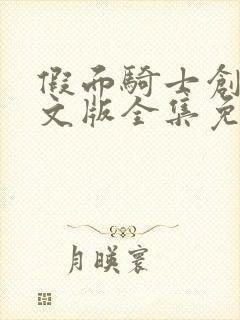 假面騎士創
文版全集免
月暎寰